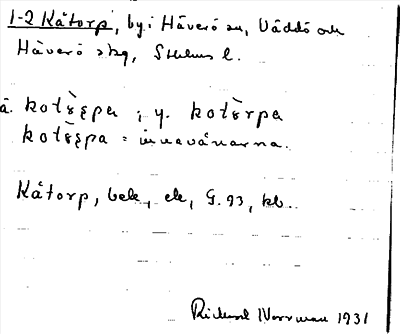 1-2 Kåtorp, by i Häverö sn, Väddö och
Häverö skg, Sthlms l.
ä. kotə̀rpa ; y. kotə̀rpa
kotə̀rpa = innevånarna.
Kåtorp, bebk, ek, G. 93, kb.
Rickard Norrman 1931